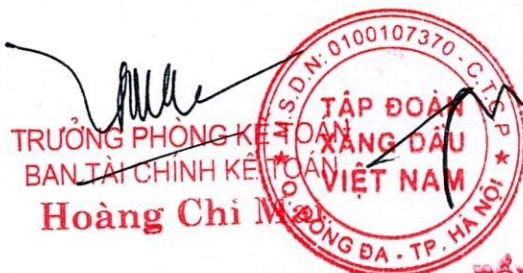 TRƯỞNG PHÒNG KẾ TOÁN
BAN TÀI CHÍNH KẾ TOÁN
Hoàng Chi Mai
M.S.D.N: 0100107370 - C.T.C.P
TẬP ĐOÀN
XĂNG DẦU
VIỆT NAM
Q. ĐỐNG ĐA - TP. HÀ NỘI